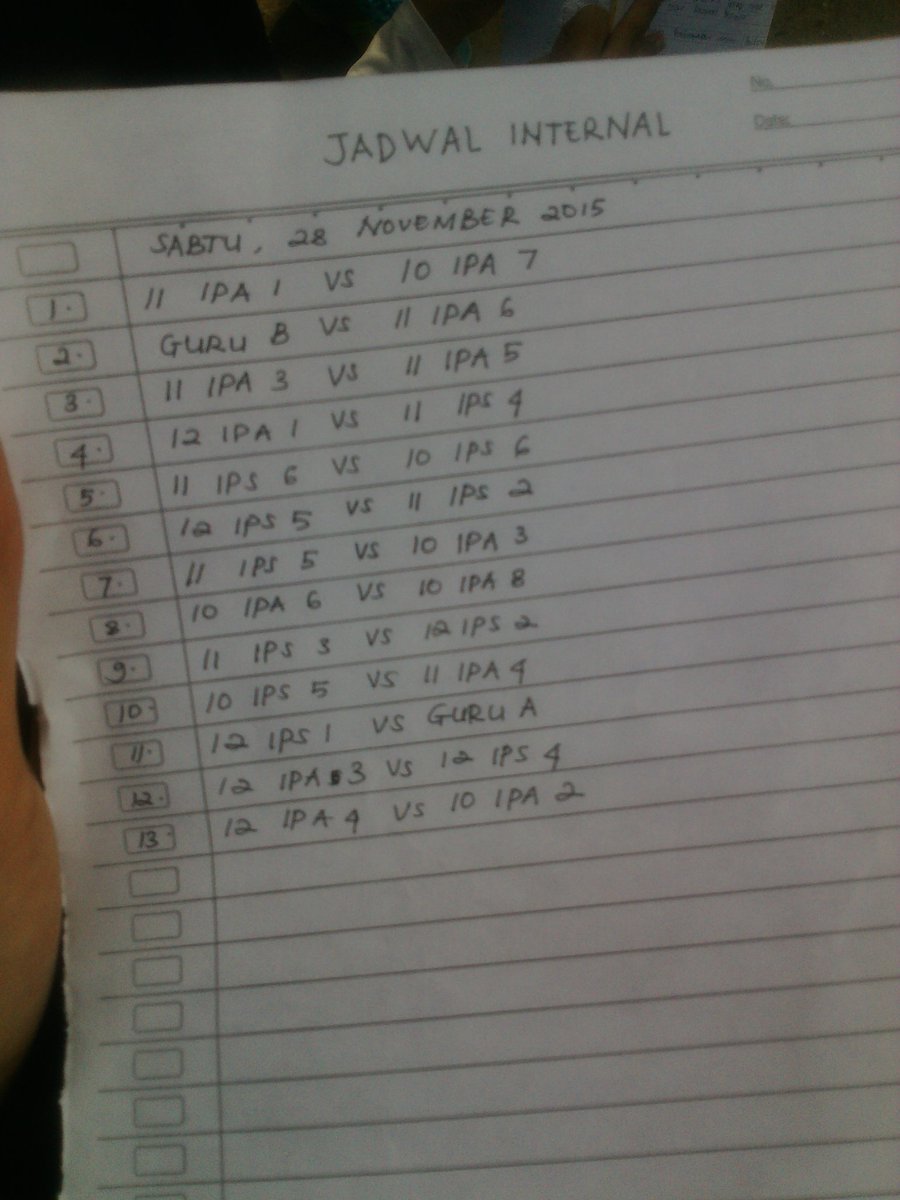 No.
Date:
JADWAL INTERNAL
SABTU, 28 NOVEMBER 2015
1. 11 IPA 1 VS 10 IPA 7
2. GURU B VS 11 IPA 6
3. 11 IPA 3 VS 11 IPA 5
4. 12 IPA 1 VS 11 IPS 4
5. 11 IPS 6 VS 10 IPS 6
6. 12 IPS 5 VS 11 IPS 2
7. 11 IPS 5 VS 10 IPA 3
8. 10 IPA 6 VS 10 IPA 8
9. 11 IPS 3 VS 12 IPS 2
10. 10 IPS 5 VS 11 IPA 4
11. 12 IPS 1 VS GURU A
12. 12 IPA 3 VS 12 IPS 4
13. 12 IPA 4 VS 10 IPA 2